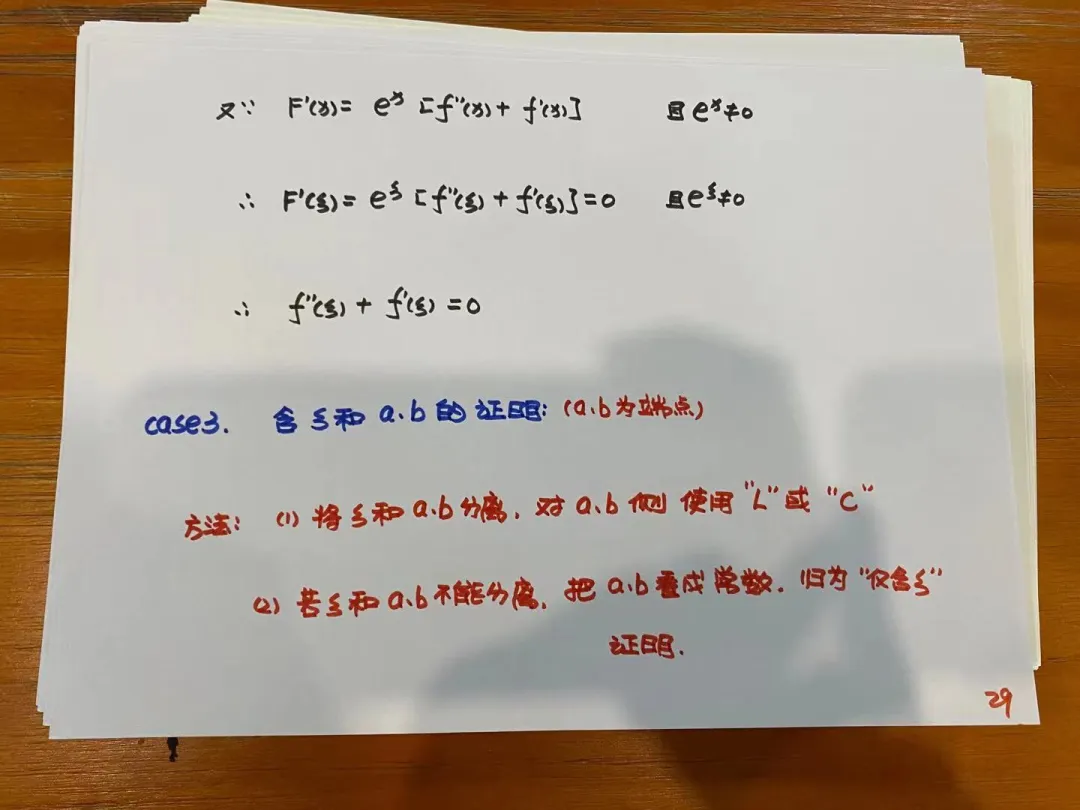 又∵ F'(x)= eˣ [f''(x)+ f'(x)] 且eˣ≠0
∴ F'(ξ)= e^ξ [f''(ξ)+f'(ξ)]=0 且e^ξ≠0
∴ f''(ξ)+ f'(ξ)=0
case3. 含ξ和a.b的证明:(a.b为端点)
方法: (1) 将ξ和a.b分离,对a.b侧使用"L"或"C"
(2) 若ξ和a.b不能分离,把a.b看成常数.归为"仅含ξ"
证明.
29